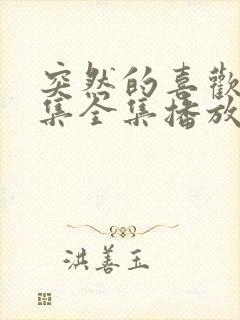 突然的喜歡
集全集播放
洪善玉